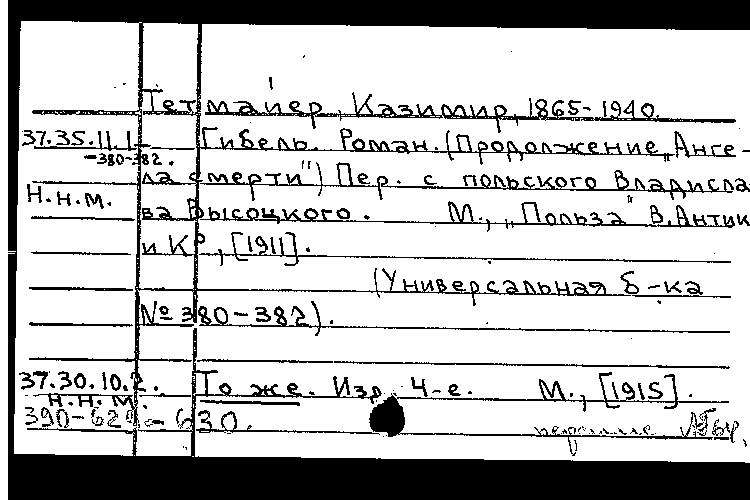 Тетмайер, Казимир, 1865-1940.
37.35.11.1 Гибель. Роман. (Продолжение „Анге-
-380-382.
ла смерти") Пер. с польского Владисла
Н.Н.М.
ва Высоцкого. М., „Польза" В. Антик
и Кº, [1911].
(Универсальная б-ка
№ 380-382).
37.30.10.2. То же. Изд. 4-е. М., [1915].
Н.Н.М.
390-629-630.